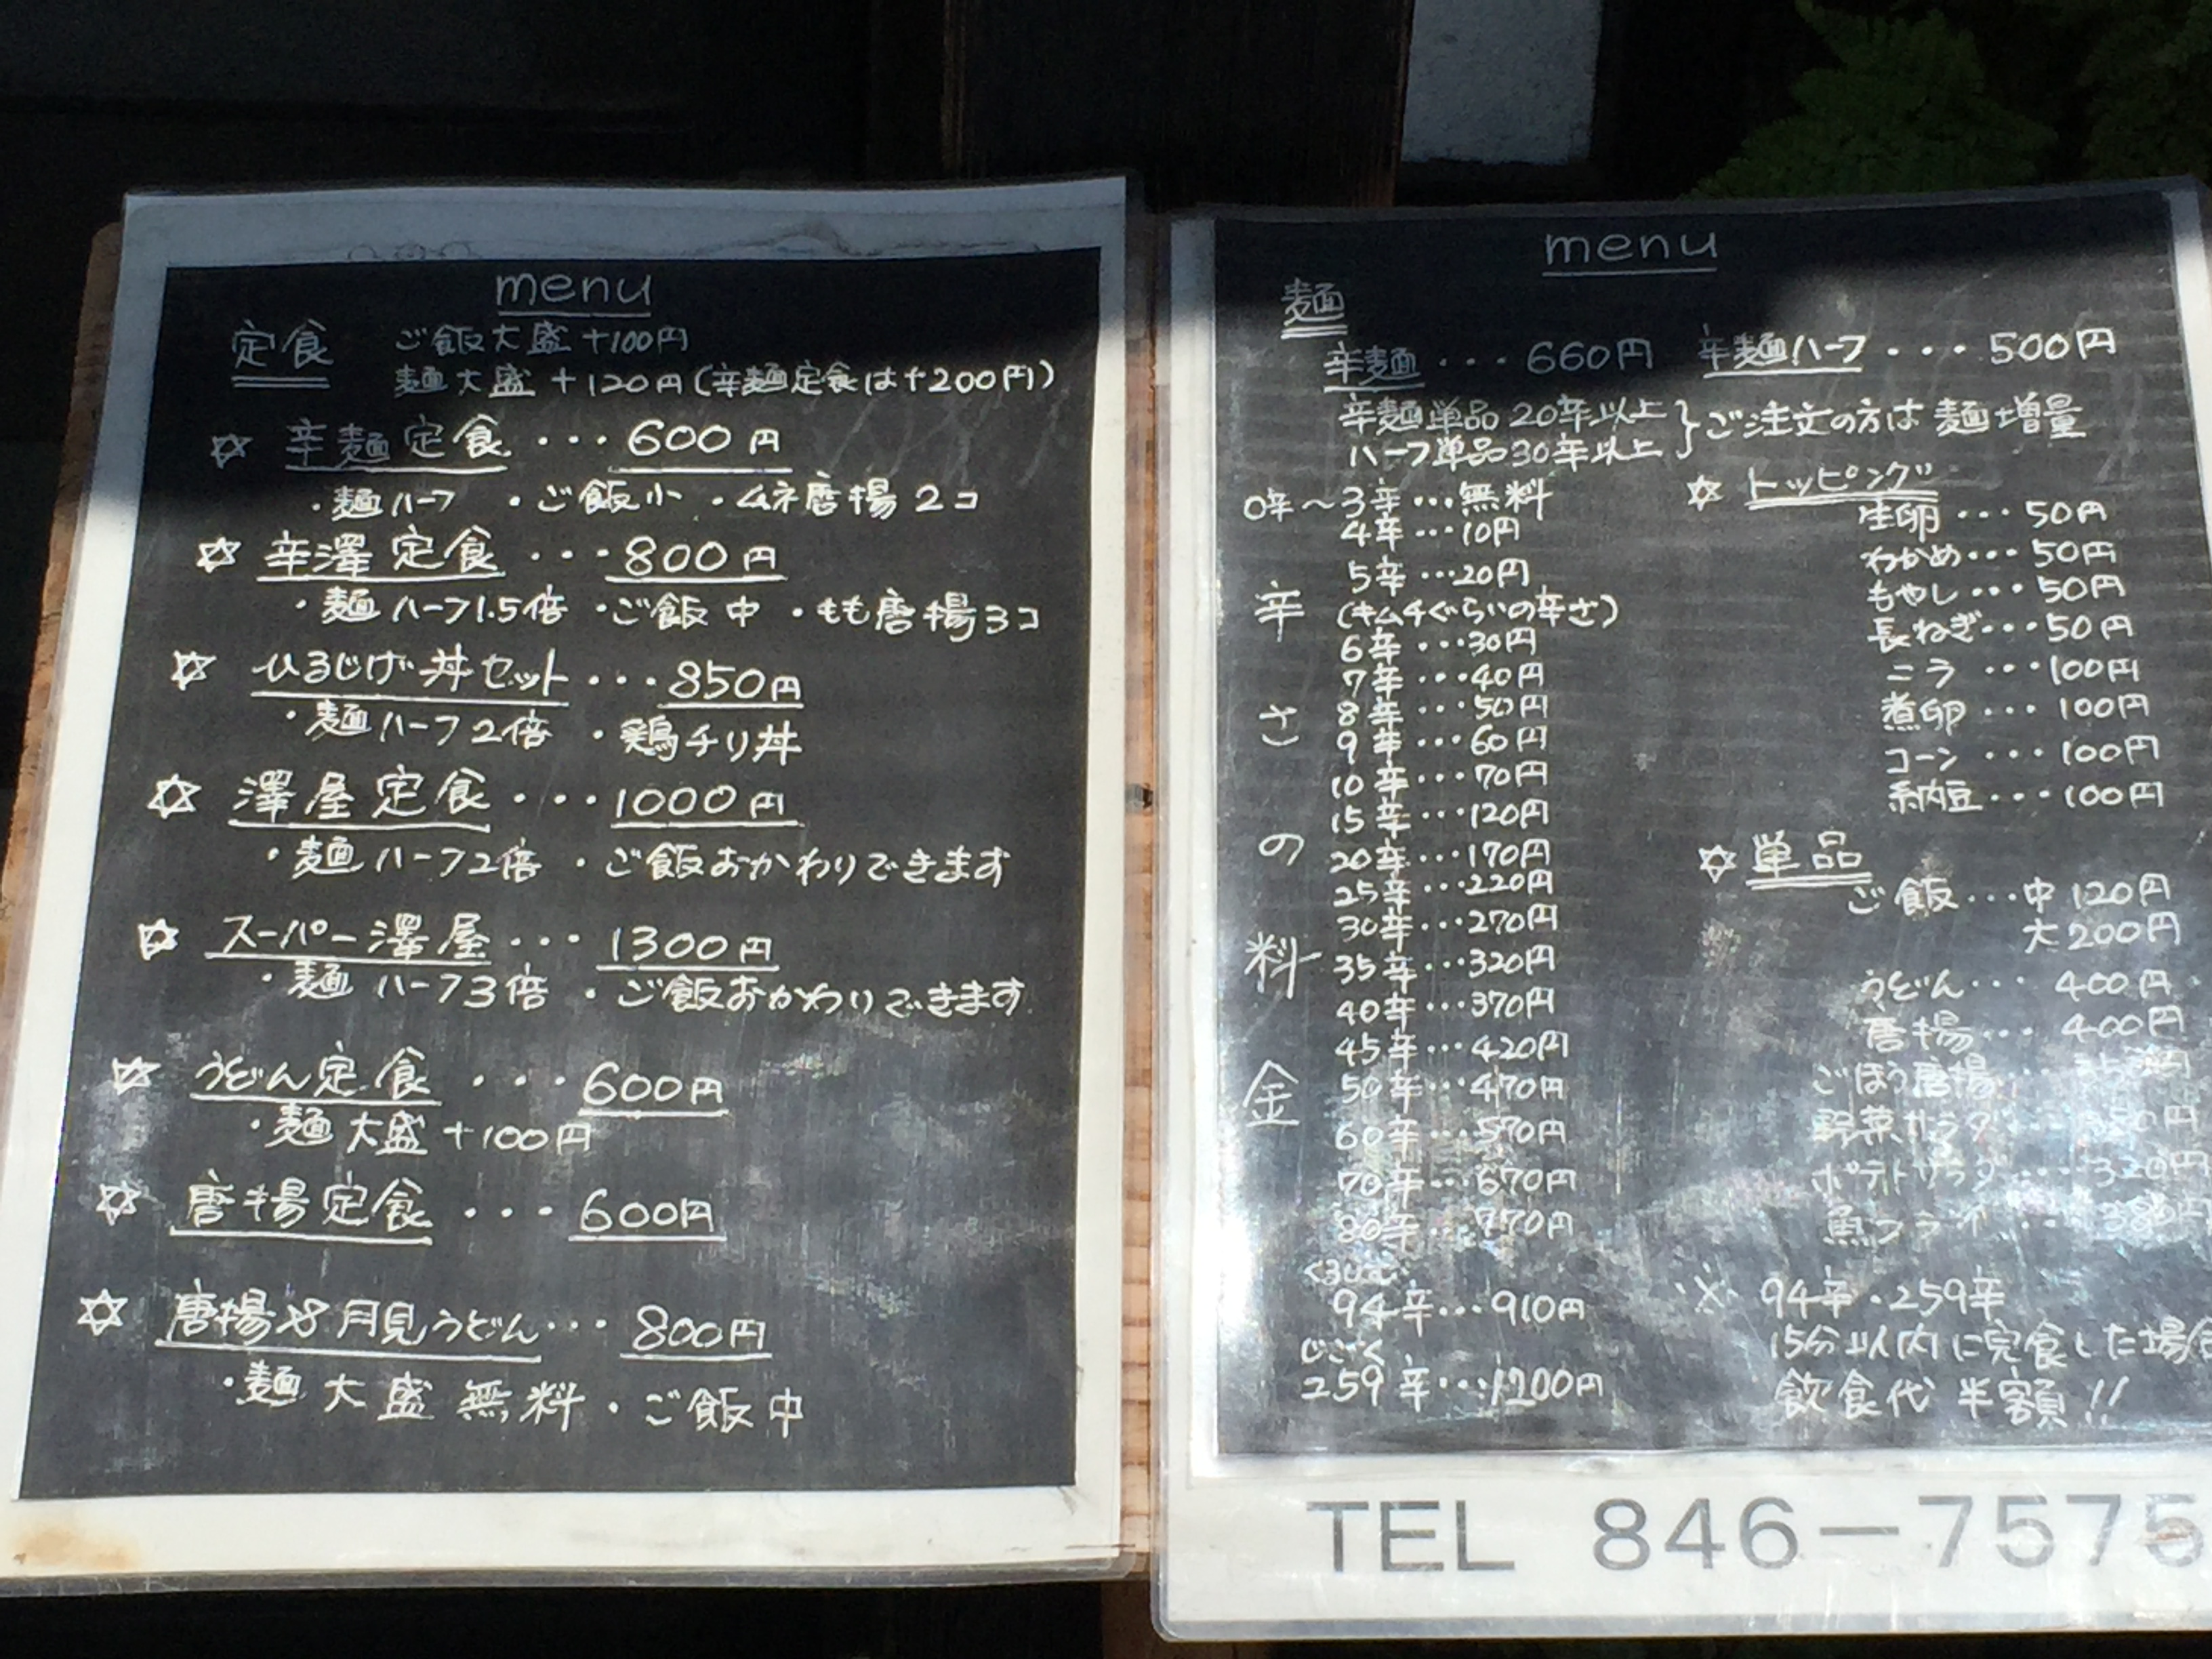 menu
定食 ご飯大盛 +100円
麺大盛 +120円(辛麺定食は+200円)
☆ 辛麺定食 ・・・ 600円
・麺ハーフ ・ご飯小 ・ムネ唐揚2コ
☆ 辛澤定食 ・・・ 800円
・麺ハーフ1.5倍 ・ご飯中 ・もも唐揚3コ
☆ ひるじげ丼セット ・・・ 850円
・麺ハーフ2倍 ・鶏チリ丼
☆ 澤屋定食 ・・・ 1000円
・麺ハーフ2倍 ・ご飯おかわりできます
☆ スーパー澤屋 ・・・ 1300円
・麺ハーフ3倍 ・ご飯おかわりできます
☆ うどん定食 ・・・ 600円
・麺大盛+100円
☆ 唐揚定食 ・・・ 600円
☆ 唐揚&月見うどん ・・・ 800円
・麺大盛無料 ・ご飯中
menu
麺
辛麺 ・・・ 660円 辛麺ハーフ ・・・ 500円
辛麺単品20辛以上
ハーフ単品30辛以上 } ご注文の方は麺増量
辛さの料金
0辛〜3辛…無料
4辛…10円
5辛…20円
(キムチぐらいの辛さ)
6辛…30円
7辛…40円
8辛…50円
9辛…60円
10辛…70円
15辛…120円
20辛…170円
25辛…220円
30辛…270円
35辛…320円
40辛…370円
45辛…420円
50辛…470円
60辛…570円
70辛…670円
80辛…770円
94辛…910円
じごく
259辛…1700円
☆ トッピング
生卵…50円
わかめ…50円
もやし…50円
長ねぎ…50円
ニラ…100円
煮卵…100円
コーン…100円
納豆…100円
☆ 単品
ご飯…中120円
大200円
うどん…400円
唐揚…400円
ごぼう唐揚
野菜サラダ
ポテトサラダ
魚フライ
※ 94辛・259辛
15分以内に完食した場合
飲食代半額!!
TEL 846-7575